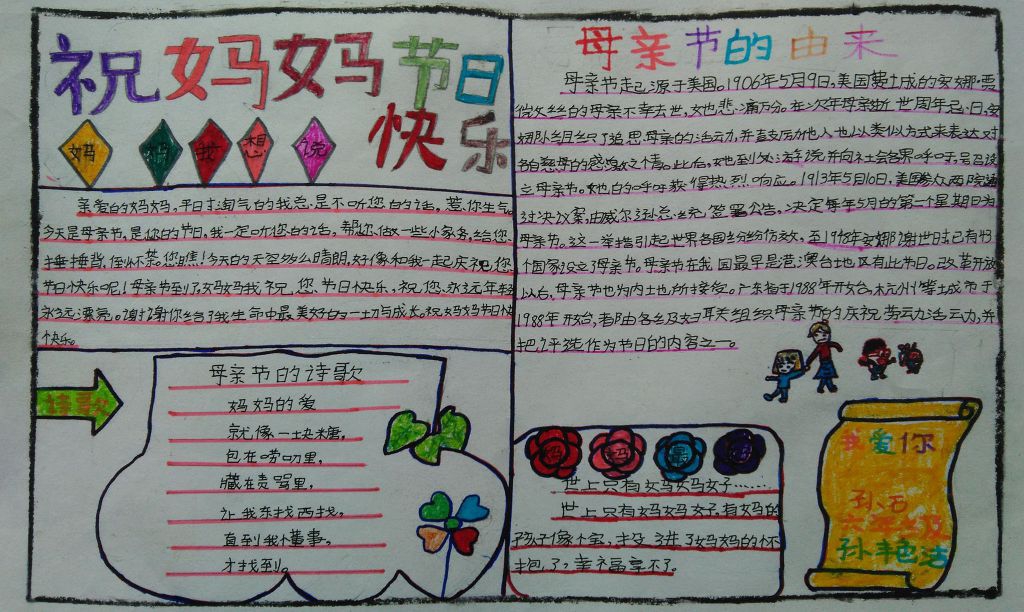 祝妈妈节日
快乐
妈 妈 我 想 说
亲爱的妈妈,平日淘气的我总是不听您的话,惹你生气。
今天是母亲节,是你的节日,我一定听您的话,帮您做一些小家务,给您
捶捶背,倒杯茶。您瞧!今天的天空多么晴朗,好像和我一起庆祝您
节日快乐呢!母亲节到了,妈妈我祝您节日快乐,祝您永远年轻
永远漂亮。谢谢你给了我生命中最美好的一切与成长。祝妈妈节日快
快乐。
诗歌
母亲节的诗歌
妈妈的爱
就像一块糖,
包在唠叨里,
藏在责骂里,
让我东找西找,
直到我懂事。
才找到。
母亲节的由来
母亲节走己源于美国。1906年5月9日,美国费土成的安娜·贾
的母亲不幸去世,女也悲痛万分。在次年母亲逝世周年忌日,安
娜组织了追思母亲的活动,并直支厉力他人也以类似方式来表达对
各自慈母的感激之情。此后,她到处游说并向社会各界呼吁,号马设
立母亲节。她的呼吁获得热烈响应。1913年5月10日,美国参众两院通
过决议案,由威尔逊总统签署公告,决定每年5月的第一个星期日为
母亲节。这一举措引起世界各国纷纷仿效,至1948年安娜谢世时,已有43
个国家设立了母亲节。母亲节在我国最早是港澳台地区有此节日。改革开放
以后,母亲节也为内土也所接受。广东省于1988年开始,杭州等城市于
1988年开始,者由各级妇联关组织母亲节的庆祝劳动活动,并
把评选作为节日的内容之一。
妈 妈 最
世上只有妈妈好……
世上只有妈妈好,有妈的
孩子像个宝,投进了妈妈的怀
抱了,幸福享不了。
我爱你
孙
六年级
孙丰色洁